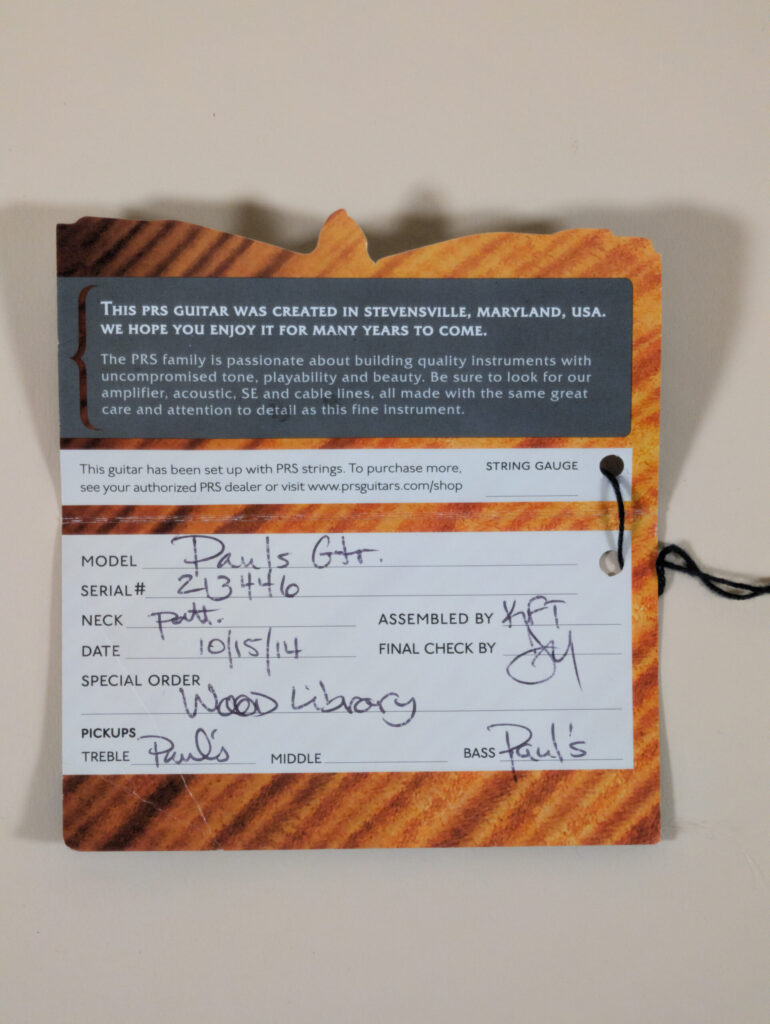 THIS PRS GUITAR WAS CREATED IN STEVENSVILLE, MARYLAND, USA.
WE HOPE YOU ENJOY IT FOR MANY YEARS TO COME.
The PRS family is passionate about building quality instruments with
uncompromised tone, playability and beauty. Be sure to look for our
amplifier, acoustic, SE and cable lines, all made with the same great
care and attention to detail as this fine instrument.
This guitar has been set up with PRS strings. To purchase more, STRING GAUGE
see your authorized PRS dealer or visit www.prsguitars.com/shop
MODEL Pauls Gtr.
SERIAL# 213446
NECK patt. ASSEMBLED BY KFT
DATE 10/15/14 FINAL CHECK BY
SPECIAL ORDER
Wood Library
PICKUPS
TREBLE Paul's MIDDLE BASS Paul's